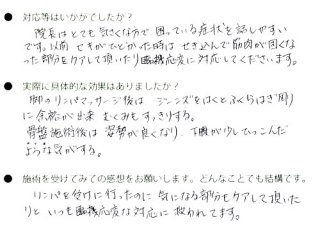 ● 対応等はいかがでしたか？
院長はとても気さくな方で困っている症状を話しやすい
です。以前セキがひどかった時はせき込んで筋肉が固くな
った部分をケアして頂いたり臨機応変に対応してくださいます。
● 実際に具体的な効果はありましたか？
脚のリンパマッサージ後はジーンズをはくとふくらはぎ周り
に余裕が出来むくみもすっきりする。
骨盤施術後は姿勢が良くなり、下腹が少しへっこんだ
ような気がする。
● 施術を受けてみての感想をお願いします。どんなことでも結構です。
リンパを受けに行ったのに気になる部分もケアして頂いた
りと いつも臨機応変な対応に救われてます。